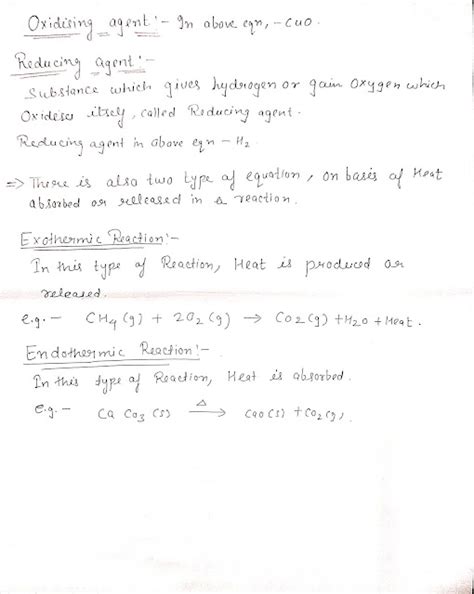 Oxidising agent :- In above eqn, - CuO.
Reducing agent :-
Substance which gives hydrogen or gain oxygen which
Oxideses itself, called Reducing agent.
Reducing agent in above eqn - H2
=> There is also two type of equation, on basis of Heat
absorbed or released in a reaction.
Exothermic Reaction :-
In this type of Reaction, Heat is produced or
released.
e.g. - CH4 (g) + 2O2 (g) → CO2 (g) + H2O + Heat.
Endothermic Reaction :-
In this type of Reaction, Heat is absorbed.
e.g. - Ca CO3 (s) Δ→ CaO (s) + CO2 (g).